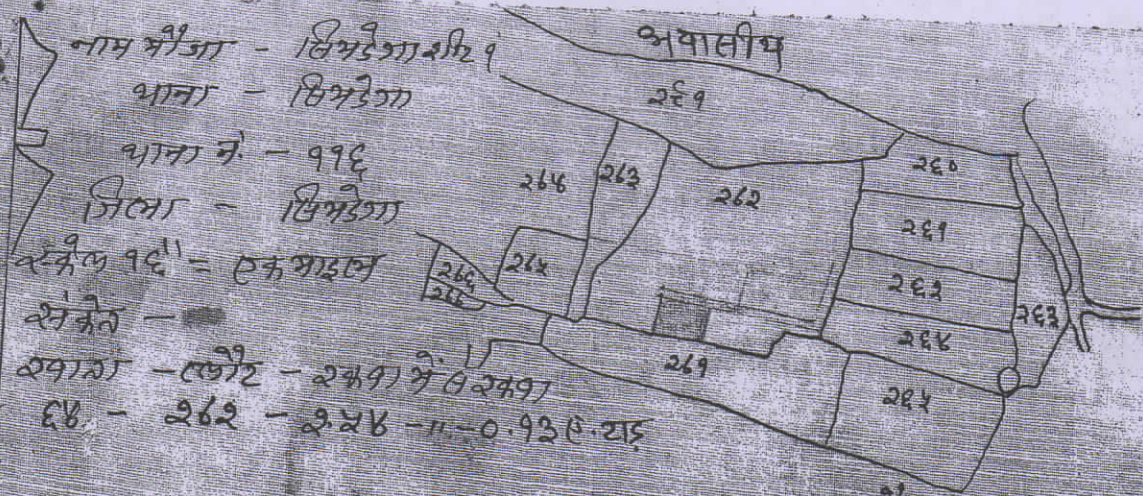 नाम मौजा - सिमडेगा शीट १
थाना - सिमडेगा
थाना नं. - ११६
जिला - सिमडेगा
स्केल १६" = एक माइल
संकेत -
खाता - प्लौट - रकबा में से रकबा
६४ - २७२ - २.५४ -"- ०.१३ ए. टाड़
२७४
२७३
२७२
२६०
२६१
२६२
२६३
२६४
२६५
२७५
२७६
२७१